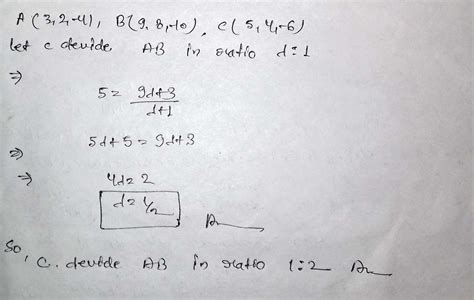 A(3,2,-4), B(9,8,-10), C(5,4,-6)
let c devide AB in ratio d:1
⇒
5 = 9d+3 / d+1
5d+5 = 9d+3
⇒
⇒ 4d = 2
d = 1/2 Ans
So, C. devede AB in ratio 1:2 Ans